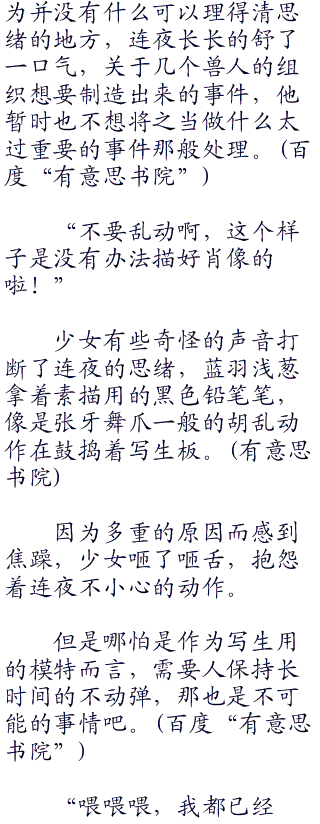 为并没有什么可以理得清思
绪的地方，连夜长长的舒了
一口气，关于几个兽人的组
织想要制造出来的事件，他
暂时也不想将之当做什么太
过重要的事件那般处理。(百
度“有意思书院”)
“不要乱动啊，这个样
子是没有办法描好肖像的
啦！”
少女有些奇怪的声音打
断了连夜的思绪，蓝羽浅葱
拿着素描用的黑色铅笔笔，
像是张牙舞爪一般的胡乱动
作在鼓捣着写生板。(有意思
书院)
因为多重的原因而感到
焦躁，少女咂了咂舌，抱怨
着连夜不小心的动作。
但是哪怕是作为写生用
的模特而言，需要人保持长
时间的不动弹，那也是不可
能的事情吧。(百度“有意思
书院”)
“喂喂喂，我都已经